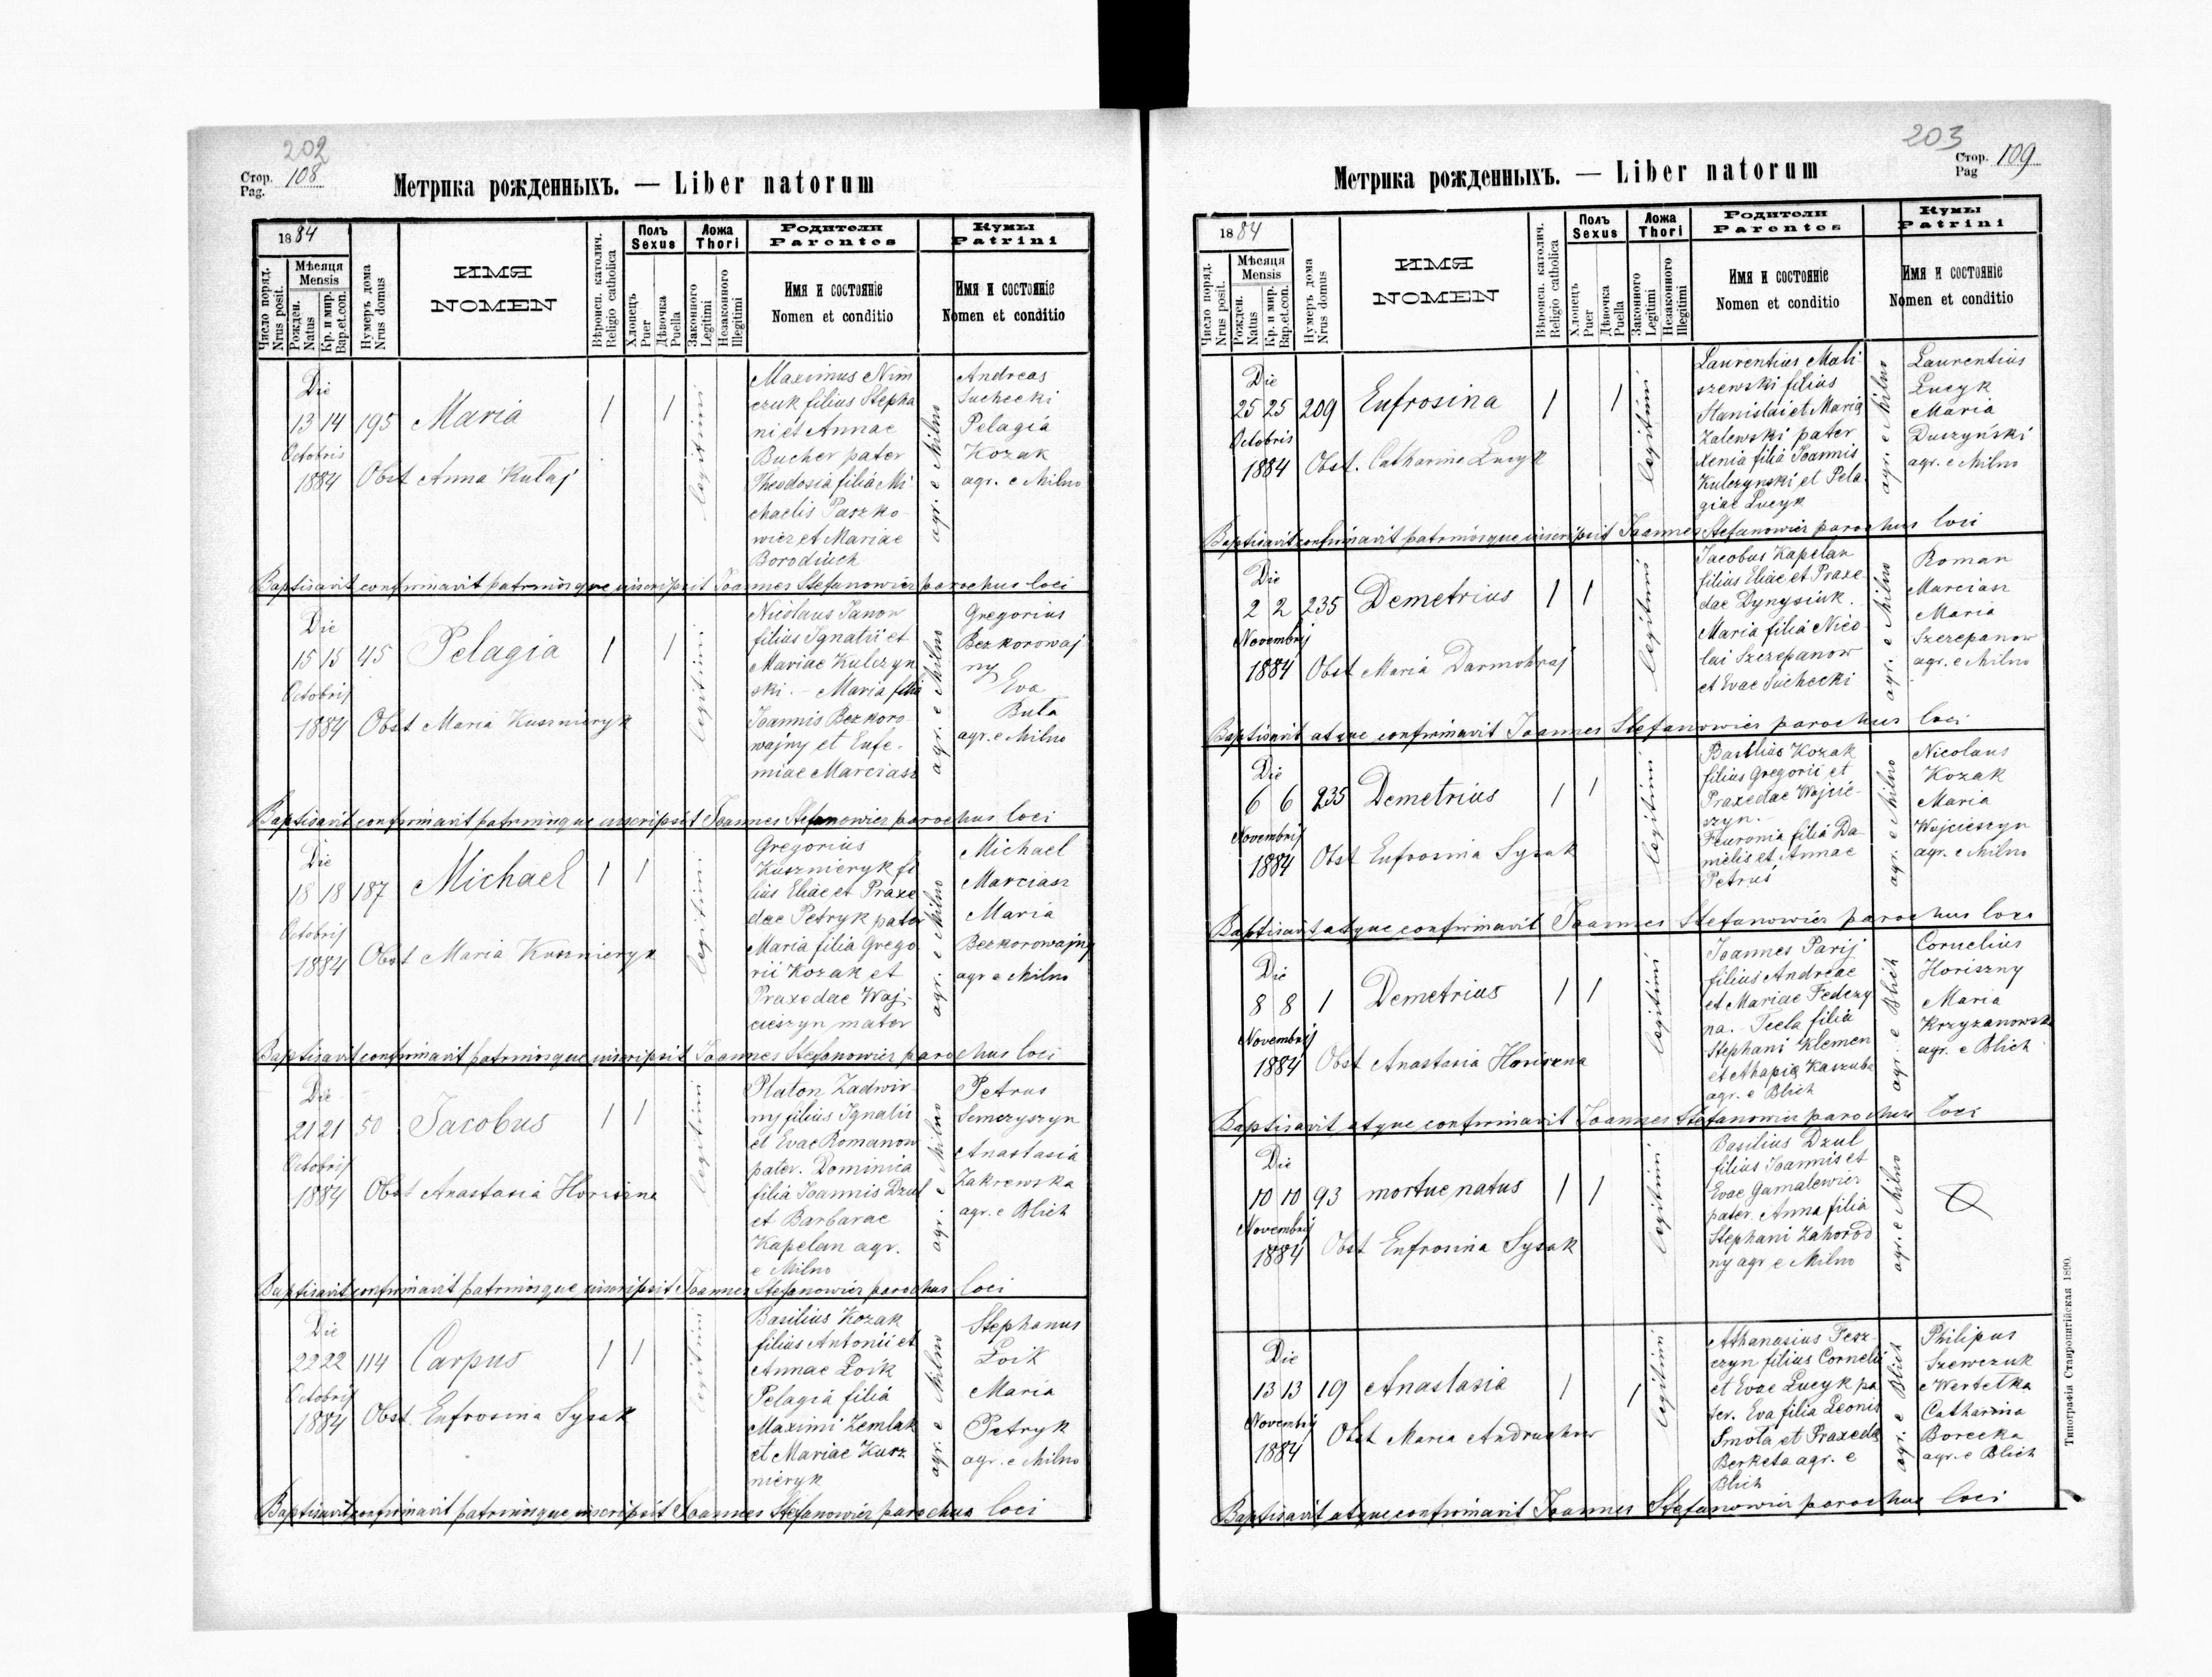 202
Стор. 108
Pag.
Метрика рожденныхъ. — Liber natorum
1884
Число поряд.
Nrus posit.
Мѣсяця
Mensis
Рожден.
Natus
Кр. и мир.
Bap. et. con.
Нумеръ дома
Nrus domus
ИМЯ
NOMEN
Вѣроисп. католич.
Religio catholica
Полъ
Sexus
Хлопецъ
Puer
Дѣвочка
Puella
Ложа
Thori
Законного
Legitimi
Незаконного
Illegitimi
Родители
Parentes
Имя и состояніе
Nomen et conditio
Кумы
Patrini
Имя и состояніе
Nomen et conditio
Die
13 14 195 Maria 1 1
Octobris
1884 Obst Anna Kułaj
legitimi
Maximus Nim
czuk filius Stepha
ni et Annae
Bucher pater
Theodosia filia Mi
chaelis Paszko
wicz et Mariae
Borodiuch
agr. e Milno
Andreas
Suchecki
Pelagia
Kozak
agr. e Milno
Baptisavit confirmavit patrinosque inscripsit Joannes Stefanowicz parochus loci
Die
15 15 45 Pelagia 1 1
Octobris
1884 Obst Maria Kusznieryk
legitimi
Nicolaus Janow
filius Ignatii et
Mariae Kulczyn
ski. - Maria filia
Joannis Bezkoro
wajny et Eufe-
miae Marciasz
agr. e Milno
Gregorius
Bezkorowaj
ny
Eva
Buła
agr. e Milno
Baptisavit confirmavit patrinosque inscripsit Joannes Stefanowicz parochus loci
Die
18 18 187 Michael 1 1
Octobris
1884 Obst Maria Kusznieryk
legitimi
Gregorius
Kusznieryk fi
lius Eliae et Praxe
dae Petryk pater
Maria filia Grego
rii Kozak et
Praxedae Waj-
cieszyn mater
agr. e Milno
Michael
Marciasz
Maria
Bezkorowajny
agr e Milno
Baptisavit confirmavit patrinosque inscripsit Joannes Stefanowicz parochus loci
Die
21 21 50 Jacobus 1 1
Octobris
1884 Obst Anastasia Horiszna
legitimi
Platon Zadwir-
ny filius Ignatii
et Evae Romanow
pater. Dominica
filia Joannis Dzul
et Barbarae
Kapelan agr.
e Milno
agr. e Milno
Petrus
Semczyszyn
Anastasia
Zakrewska
agr. e Blich
Baptisavit confirmavit patrinosque inscripsit Joannes Stefanowicz parochus loci
Die
22 22 114 Carpus 1 1
Octobris
1884 Obst. Eufrosina Sysak
legitimi
Basilius Kozak
filius Antonii et
Annae Łoik
Pelagia filia
Maximi Zemlak
et Mariae Kusz
nieryk
agr. e Milno
Stephanus
Łoik
Maria
Petryk
agr. e Milno
Baptisavit confirmavit patrinosque inscripsit Joannes Stefanowicz parochus loci
203
Стор. 109
Pag
Метрика рожденныхъ. — Liber natorum
1884
Число поряд.
Nrus posit.
Мѣсяця
Mensis
Рожден.
Natus
Кр. и мир.
Bap. et. con.
Нумеръ дома
Nrus domus
ИМЯ
NOMEN
Вѣроисп. католич.
Religio catholica
Полъ
Sexus
Хлопецъ
Puer
Дѣвочка
Puella
Ложа
Thori
Законного
Legitimi
Незаконного
Illegitimi
Родители
Parentes
Имя и состояніе
Nomen et conditio
Кумы
Patrini
Имя и состояніе
Nomen et conditio
Die
25 25 209 Eufrosina 1 1
Octobris
1884 Obst. Catharina Łucyk
legitimi
Laurentius Mali
szewski filius
Stanislai et Maria
Zalewski pater
Xenia filia Joannis
Kulczynski et Pela
giae Łucyk
agr. e Milno
Laurentius
Łucyk
Maria
Duszyński
agr. e Milno
Baptisavit confirmavit patrinosque inscripsit Joannes Stefanowicz parochus loci
Die
2 2 235 Demetrius 1 1
Novembris
1884 Obst Maria Darmohraj
legitimi
Jacobus Kapelan
filius Eliae et Praxe
dae Dynysiuk.
Maria filia Nico
lai Szczepanow
et Evae Suchecki
agr. e Milno
Roman
Marciasz
Maria
Szczepanow
agr. e Milno
Baptisavit atque confirmavit Joannes Stefanowicz parochus loci
Die
6 6 235 Demetrius 1 1
Novembris
1884 Obst Eufrosina Sysak
legitimi
Basilius Kozak
filius Gregorii et
Praxedae Wojcie-
szyn. -
Feuronia filia Da
nielis et Annae
Petruś
agr. e Milno
Nicolaus
Kozak
Maria
Wojcieszyn
agr. e Milno
Baptisavit atque confirmavit Joannes Stefanowicz parochus loci
Die
8 8 1 Demetrius 1 1
Novembris
1884 Obst Anastasia Horiszna
legitimi
Joannes Parij
filius Andreae
et Mariae Fedczy
na. - Tecla filia
Stephani Klemen
et Ahapia Kaszuba
agr. e Blich
agr. e Blich
Cornelius
Horiszny
Maria
Krzyzanowska
agr. e Blich
Baptisavit atque confirmavit Joannes Stefanowicz parochus loci
Die
10 10 93 mortue natus 1 1
Novembris
1884 Obst Eufrosina Sysak
legitimi
Basilius Dzul
filius Joannis et
Evae Gamalewicz
pater. Anna filia
Stephani Zahorod
ny agr e Milno
agr. e Milno
Die
13 13 19 Anastasia 1 1
Novembris
1884 Obst Maria Andruchow
legitimi
Athanasius Fesz-
czyn filius Cornelii
et Evae Łucyk pa
ter. Eva filia Leonis
Smoła et Praxeda
Berketa agr. e
Blich
agr. e Blich
Philipus
Szewczuk
e Wertełka
Catharina
Borecka
agr. e Blich
Baptisavit atque confirmavit Joannes Stefanowicz parochus loci
Типографія Ставропигійская 1890.